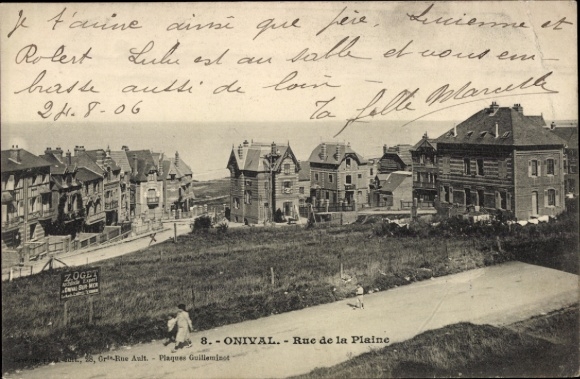 Je t'aime ainsi que père, Lucienne et
Robert Lulu est au sable et vous em-
brasse aussi de loin
24-8-06 Ta fille Marcelle
ZOGET
8. - ONIVAL. - Rue de la Plaine
Édit., 28, Grde-Rue Ault. - Plaques Guilleminot